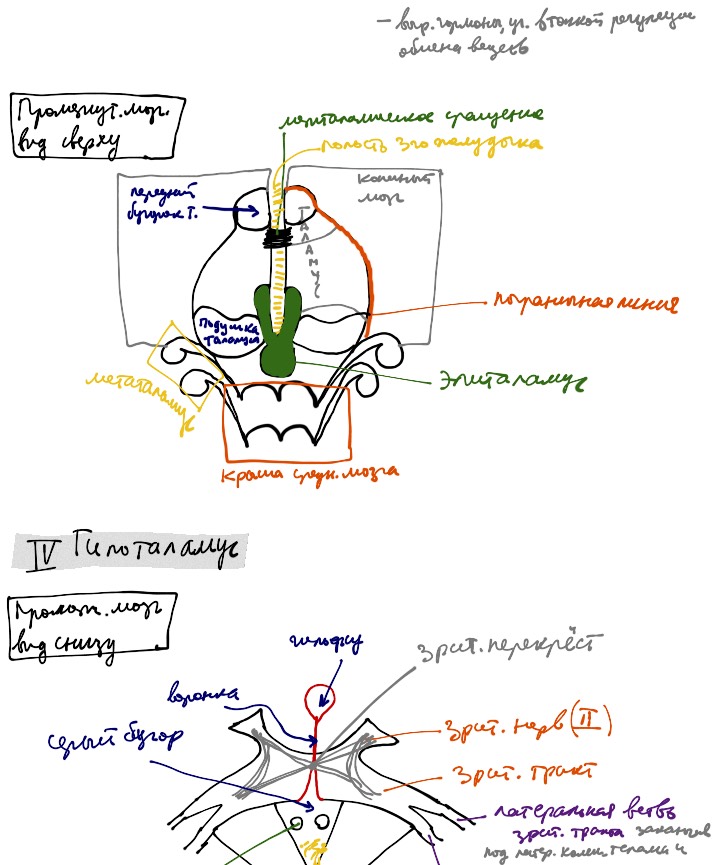 – выр. гормоны, уч. в тонкой регуляции
обмена веществ
Промежут. мозг.
вид сверху
межталамическое сращение
полость 3го желудочка
конечный
мозг
передний
бугорок Т.
Таламус
пограничная линия
Подушка
таламуса
метаталамус
Эпиталамус
Крыша средн. мозга
IV Гипоталамус
Промеж. мозг
вид снизу
гипофиз
Зрит. перекрёст
воронка
серый бугор
Зрит. нерв (II)
Зрит. тракт
латеральная ветвь
зрит. тракта
под латер. колен.